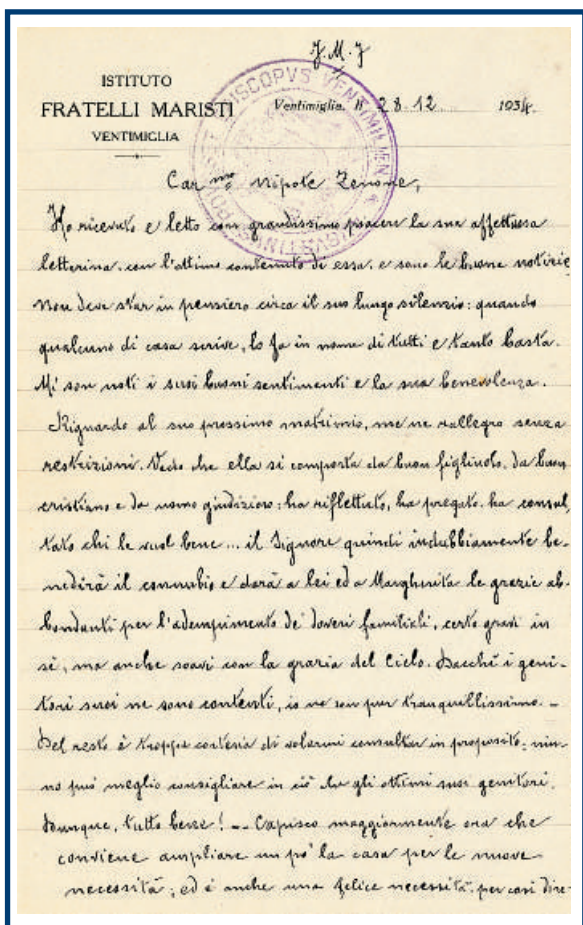 J. M. J
ISTITUTO
FRATELLI MARISTI
VENTIMIGLIA
Ventimiglia, li 28.12 1934.
EPISCOPVS VENTIMILIEN
Car.mo nipote Zenone,
Ho ricevuto e letto con grandissimo piacere la sua affettuosa
letterina, con l'ottimo contenuto di essa, e sono le buone notizie
Non deve star in pensiero circa il suo lungo silenzio: quando
qualcuno di casa scrive, lo fa in nome di tutti e tanto basta.
Mi son noti i suoi buoni sentimenti e la sua benevolenza.
Riguardo al suo prossimo matrimonio, me ne rallegro senza
restrizioni. Vedo che ella si comporta da buon figliuolo, da buon
cristiano e da uomo giudizioso: ha riflettuto, ha pregato, ha consul,
tato chi le vuol bene... il Signore quindi indubbiamente be-
nedirà il connubio e darà a lei ed a Margherita le grazie ab-
bondanti per l'adempimento de' doveri familiali, certo gravi in
sè, ma anche soavi con la grazia del Cielo. Dacchè i geni-
tori suoi ne sono contenti, io ne son pur tranquillissimo. -
Del resto è troppa cortesia di volermi consultar in proposito: niu-
no può meglio consigliare in ciò che gli ottimi suoi genitori.
Dunque, tutto bene! - Capisco maggiormente ora che
conviene ampliare un po' la casa per le nuove
necessità; ed è anche una felice necessità, per così dire-